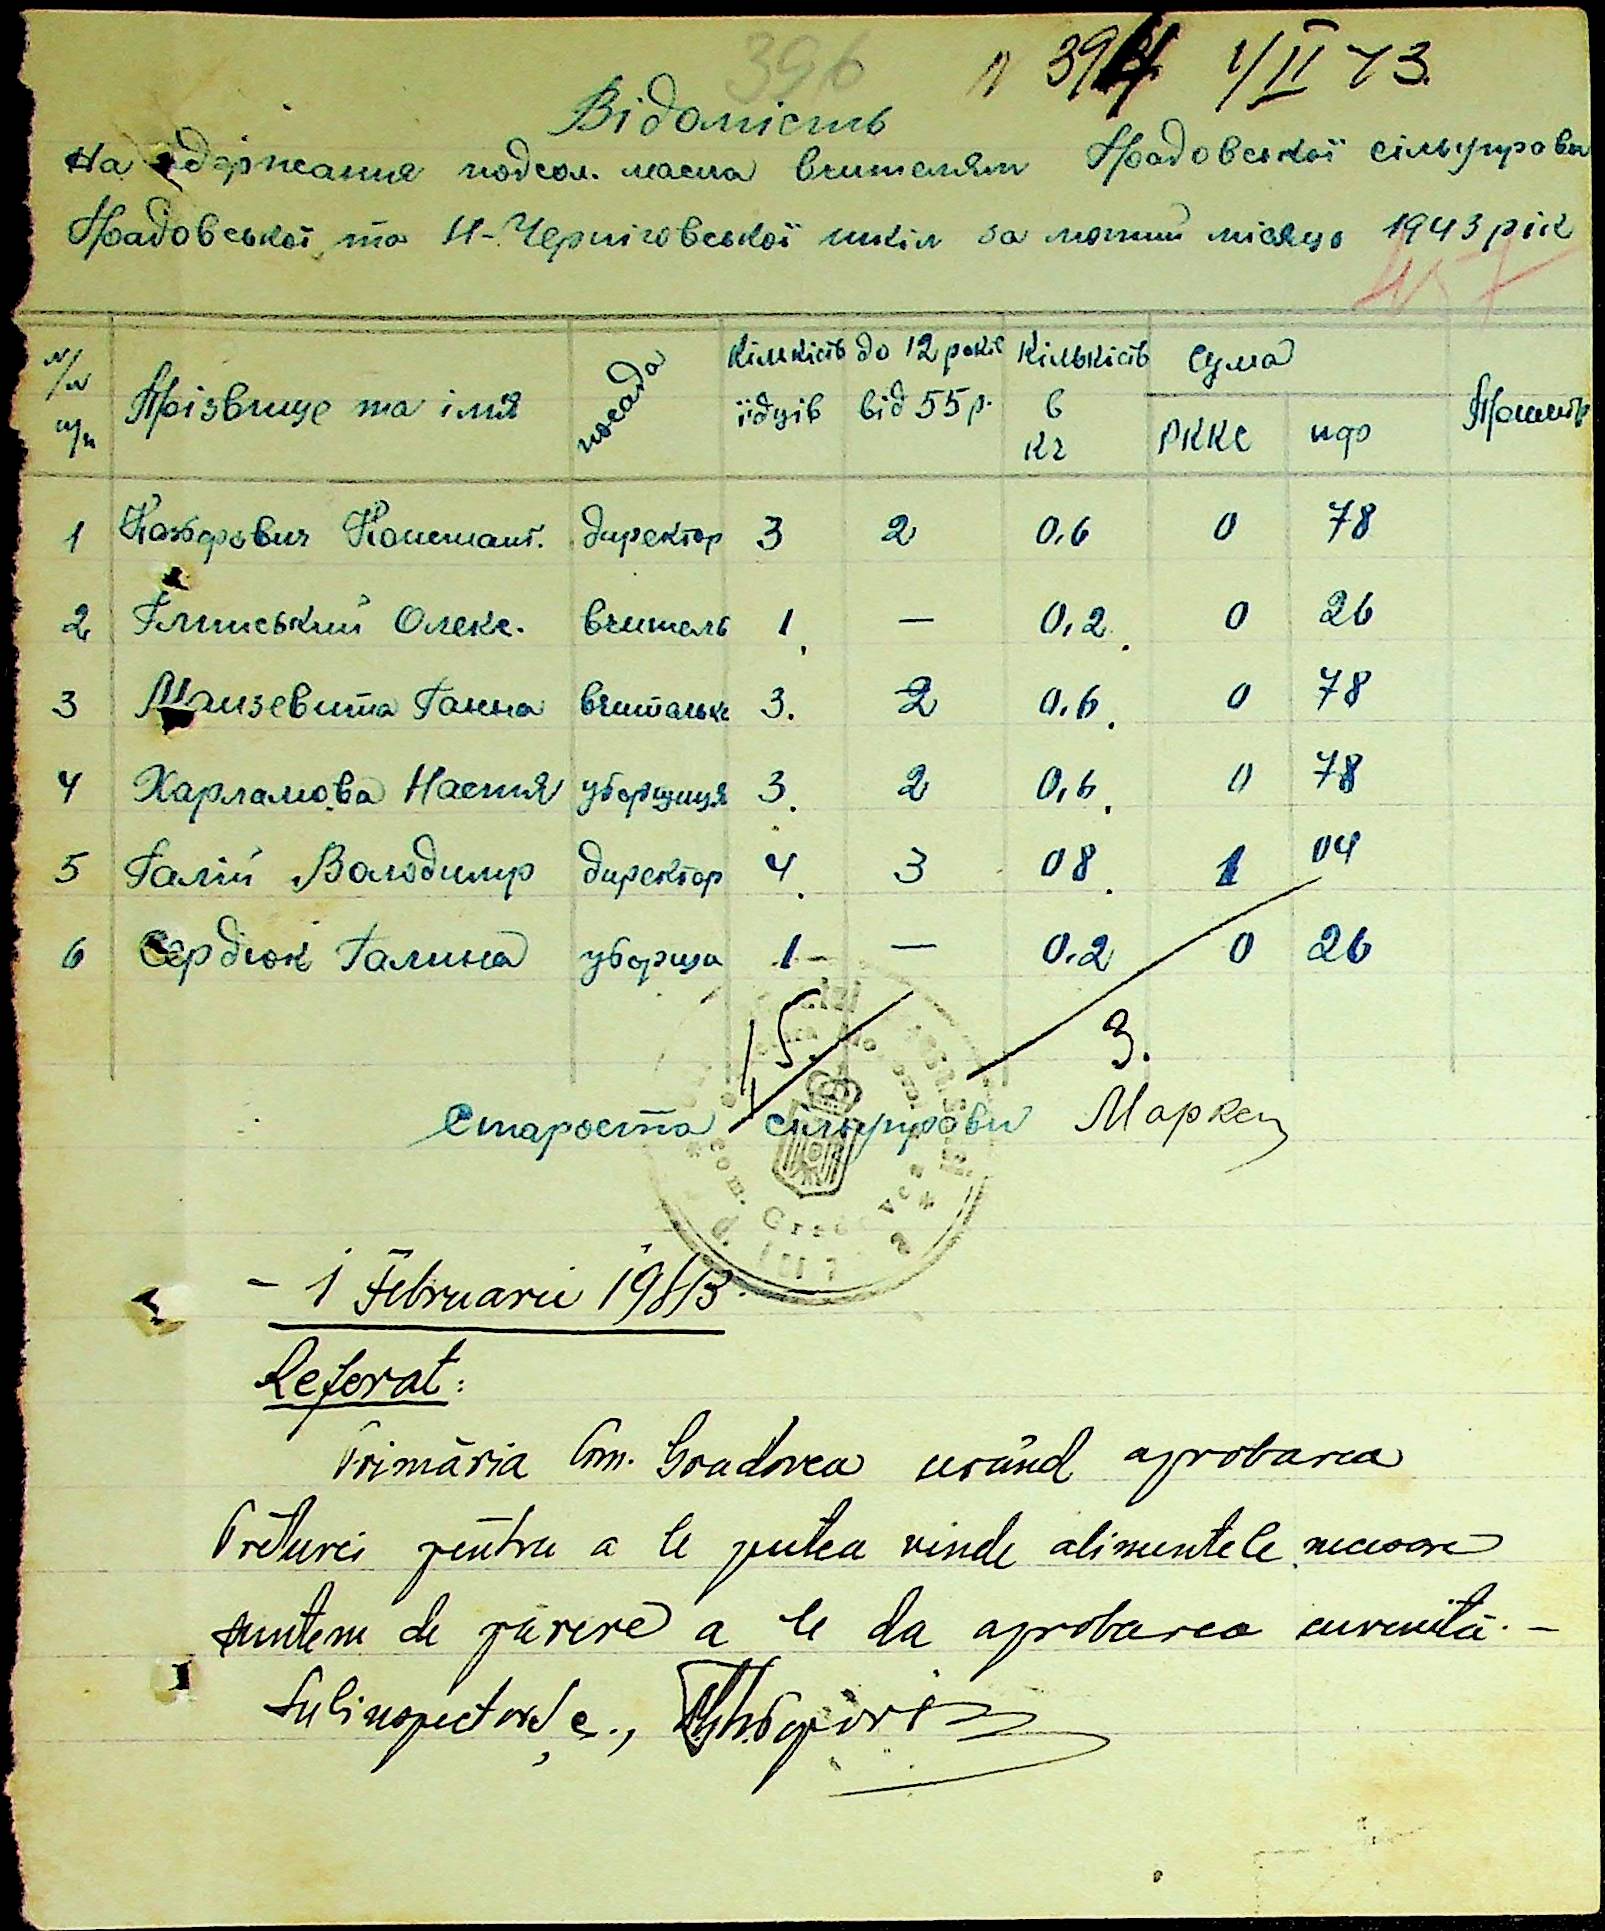 396
№ 394 1/II 43.
Відомість
На одержання подсол. масла вчителям Градовської сільуправи
Градовської та Н-Черніговської шкіл за лютий місяць 1943 рік
457
№/№ п/п Прізвище та імя посада Кількість їдців до 12 років від 55 р. Кількість в кг Сума РККС пф
1 Константи. директор 3 2 0,6 0 78
2 Глинський Олекс. вчитель 1 — 0,2 0 26
3 Ганна вчителька 3. 2 0,6 0 78
4 Харламова Настя уборщиця 3 2 0,6 0 78
5 Галій Володимир директор 4 3 08 1 04
6 Сердюк Галина уборща 1 — 0,2 0 26
15. 3.
Староста сільуправи
com. Gradovca
- 1 Februarie 1943.
Referat:
Primăria Com. Gradovca cerând aprobarea
Preturei pentru a le putea vinde alimentele necesare
suntem de părere a le da aprobarea cuvenită. -
Subinspector